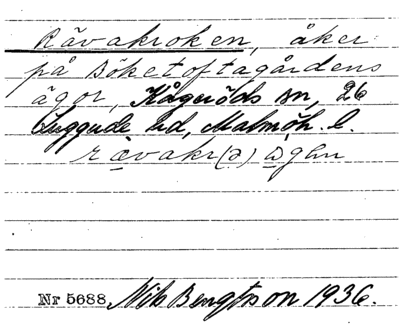 Rävakroken, åker
på Böketoftagårdens
ägor, Kågeröds sn, 26
Luggude hd, Malmöh. l.
Nr 5688 Nils Bengtsson 1936.